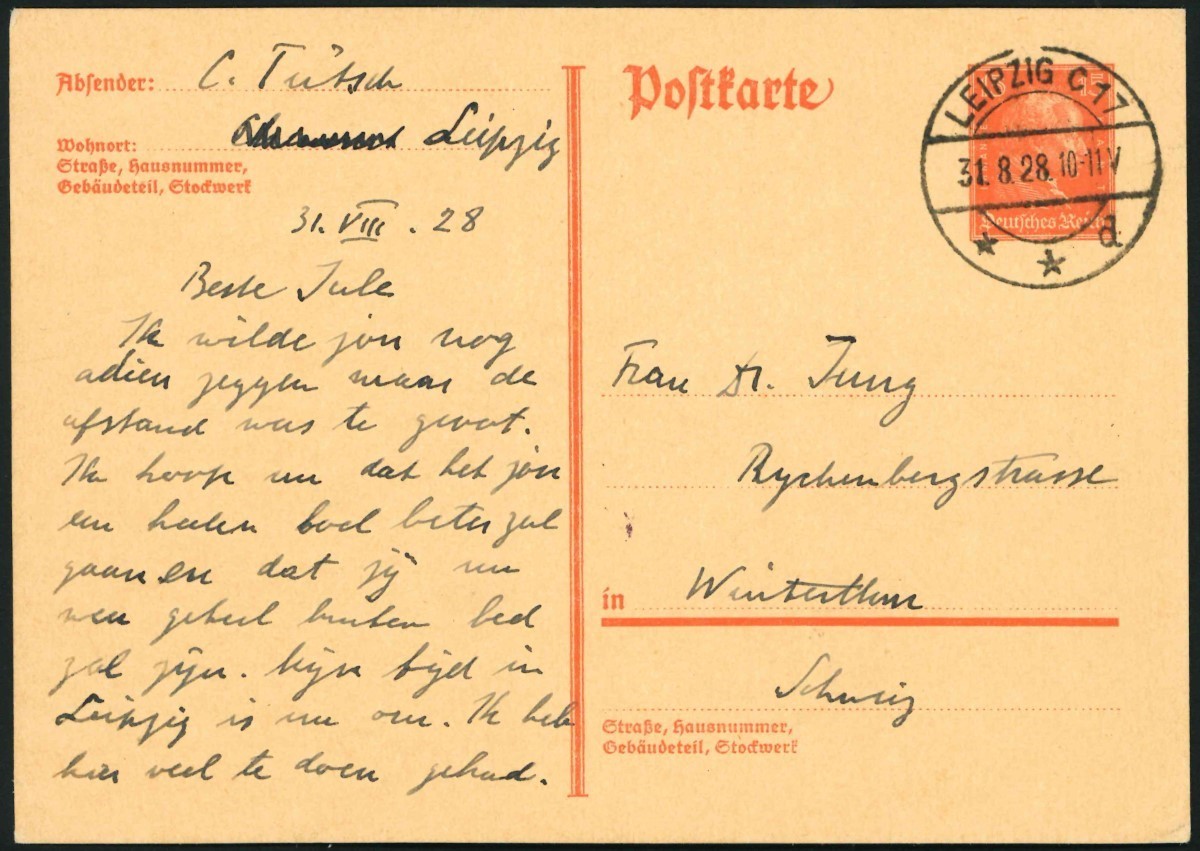 Absender: C. Tütsch
Wohnort: Leipzig
Straße, Hausnummer,
Gebäudeteil, Stockwerk
31. VIII. 28
Beste Jule
Ik wilde jou nog
adieu zeggen maar de
afstand was te groot.
Ik hoop nu dat het jou
een heelen boel beter zal
gaan en dat jij nu
weer geheel buiten bed
zal zijn. Mijn tijd in
Leipzig is nu om. Ik heb
hier veel te doen gehad.
Postkarte
LEIPZIG C 17
31.8.28.10-11V
d
15 15
Deutsches Reich
Frau Dr. Jung
Rychenbergstrasse
in Winterthur
Schweiz
Straße, Hausnummer,
Gebäudeteil, Stockwerk